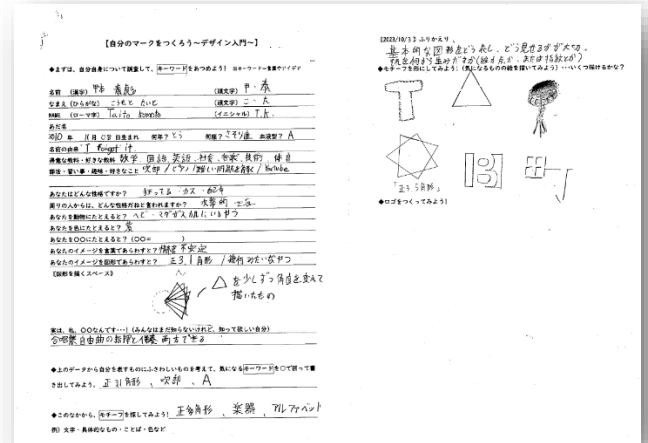 【自分のマークをつくろう〜デザイン入門〜】
◆まずは、自分自身について調査して、キーワードをあつめよう!
名前 (漢字) (頭文字) 甲・泰
なまえ (ひらがな) こうもと たいと (頭文字) こ・た
(ローマ字) Taito Komoto (イニシャル) T.K.
あだ名
2010年 日生まれ 何年? とら 何座? さそり座 血液型? A
名前の由来 I forget it.
得意な教科・好きな教科 数学、国語、英語、社会、音楽、技術、体育
部活・習い事・趣味・好きなこと 吹部 / ピアノ / 難しい問題を解く / Youtube
あなたはどんな性格ですか? 狂ってる・カス・
周りの人からは、どんな性格だねと言われますか?
あなたを動物にたとえると? ヘビ・マダガスカルにいるやつ
あなたを色にたとえると?
あなたを〇〇にたとえると? (〇〇= )
あなたのイメージを言葉であらわすと? 情緒不安定
あなたのイメージを図形であらわすと? 正3.1角形 / 幾何みたいなやつ
《図形を描くスペース》
△を少しずつ角度を変えて
描いたもの
実は、私、〇〇なんです…! (みんなはまだ知らないけれど、知って欲しい自分)
合唱祭自由曲の指揮と伴奏 両方できる
◆上のデータから自分を表すものにふさわしいものを考えて、気になるキーワードを〇で囲って書
き出してみよう。 正3.1角形、吹部、A
◆このなかから、モチーフを探してみよう! 正多角形、楽器、アルファベット
例) 文字・具体的なもの・ことば・色など
【2023/10/3】ふりかえり
基本的な図形をどう表し、どう見せるかが大切。
◆モチーフを形にしてみよう! (気になるものの絵を描いてみよう) …いくつ描けるかな?
T
「正3.1角形」
◆ロゴをつくってみよう!